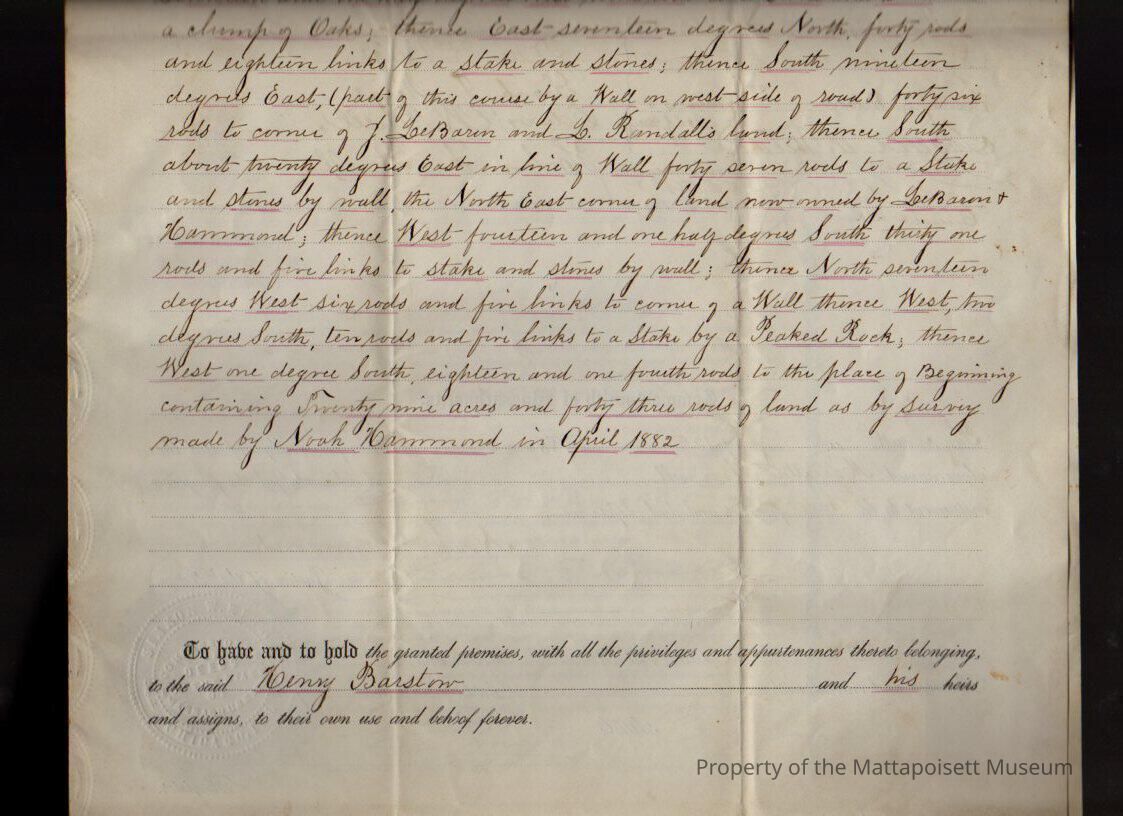 a clump of Oaks; thence East seventeen degrees North, forty rods
and eighteen links to a stake and stones; thence South nineteen
degrees East, (part of this course by a Wall on west side of road) forty six
rods to corner of J. LeBaron and L. Randall's land; thence South
about twenty degrees East in line of Wall forty seven rods to a Stake
and stones by wall, the North East corner of land now owned by LeBaron &
Hammond; thence West fourteen and one half degrees South thirty one
rods and five links to stake and stones by wall; thence North seventeen
degrees West six rods and five links to corner of a Wall thence West, two
degrees South, ten rods and five links to a Stake by a Peaked Rock; thence
West one degree South, eighteen and one fourth rods to the place of Beginning
containing Twenty nine acres and forty three rods of land as by survey
made by Noah Hammond in April 1882
To have and to hold the granted premises, with all the privileges and appurtenances thereto belonging,
to the said Henry Barstow and his heirs
and assigns, to their own use and behoof forever.
Property of the Mattapoisett Museum